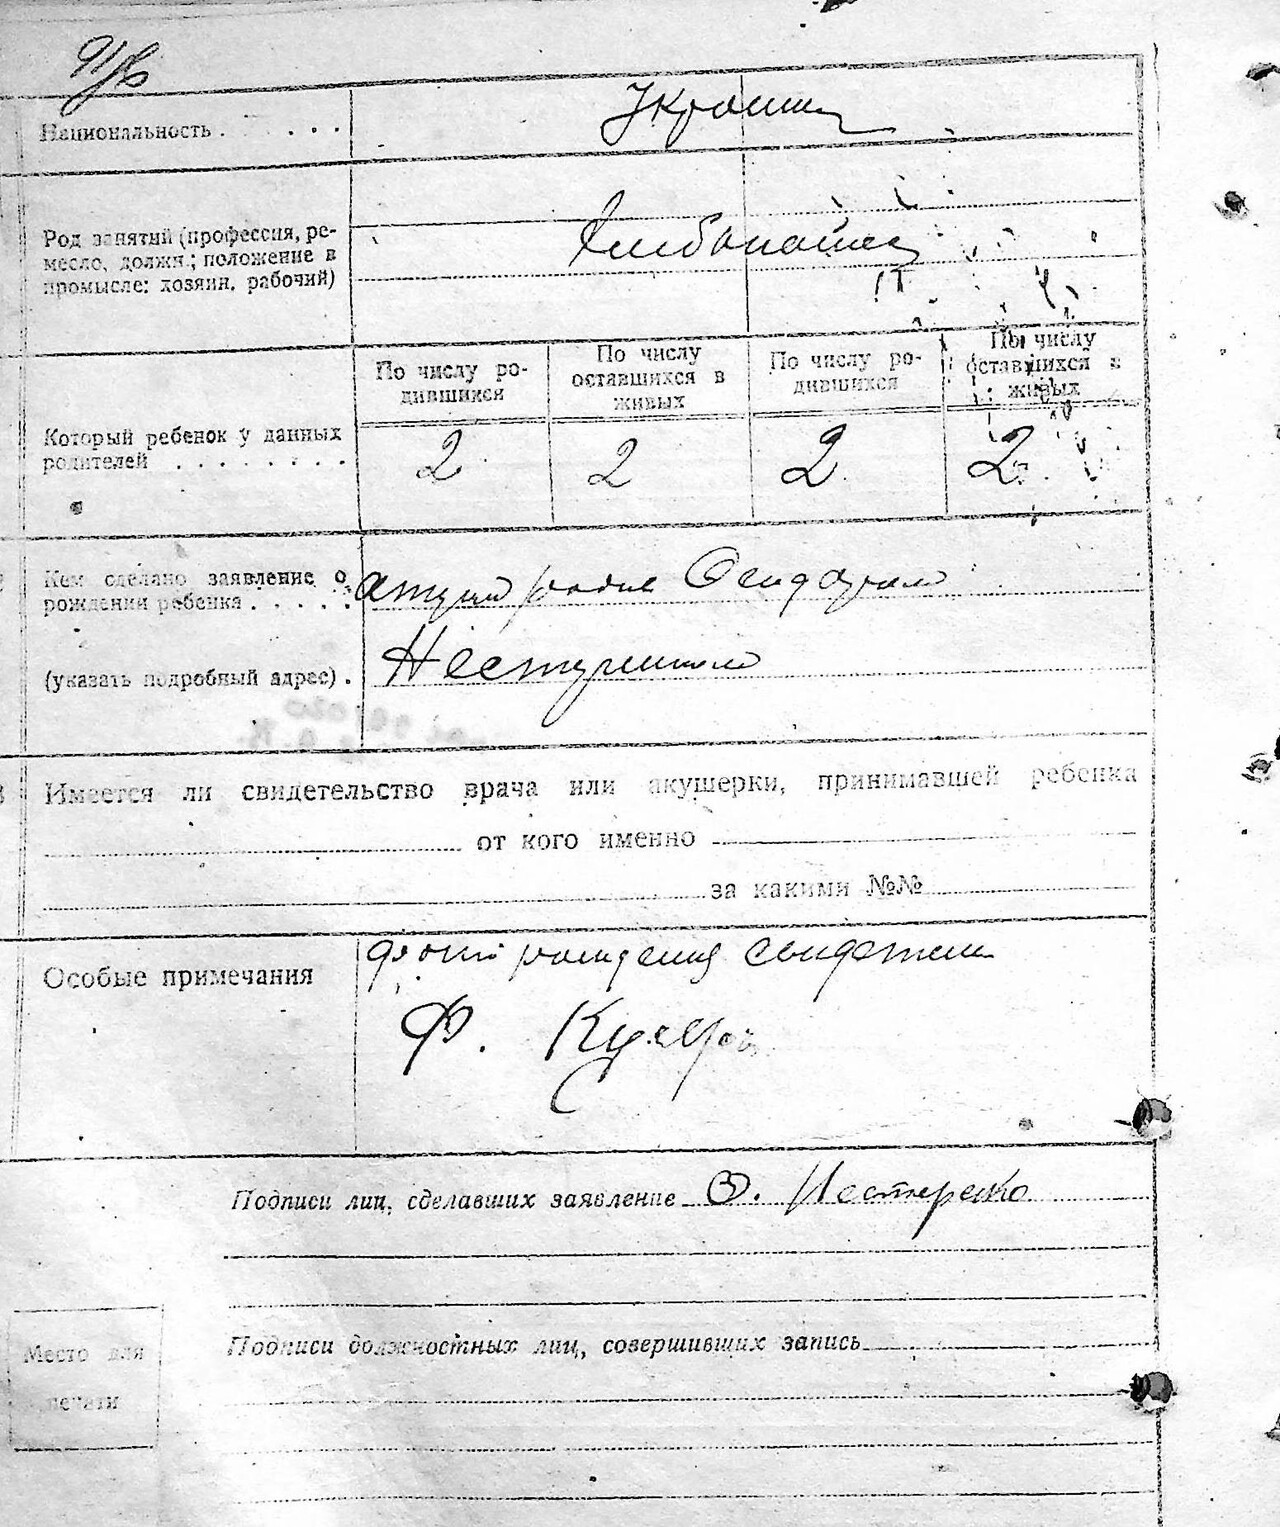 Национальность . . . . . .
Украин
Род занятий (профессия, ре-
месло, должн.; положение в
промысле: хозяин, рабочий)
Хлебопашец
По числу ро-
дившихся
По числу
оставшихся в
живых
По числу ро-
дившихся
По числу
оставшихся в
живых
Который ребенок у данных
родителей . . . . . . . .
2 2 2. 2.
Кем сделано заявление о
рождении ребенка . . . . .
(указать подробный адрес) .
Имеется ли свидетельство врача или акушерки, принимавшей ребенка
от кого именно
за какими №№
Особые примечания
рождения
Ф.
Подписи лиц, сделавших заявление О. Нестеренко
Подписи должностных лиц, совершивших запись
Место для
печати